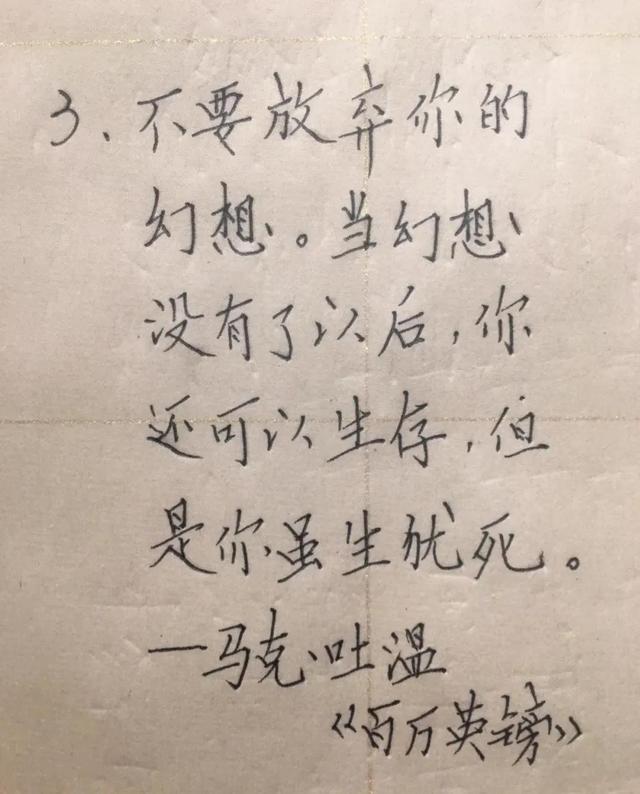 3、不要放弃你的
幻想。当幻想
没有了以后,你
还可以生存,但
是你虽生犹死。
—马克·吐温
《百万英镑》